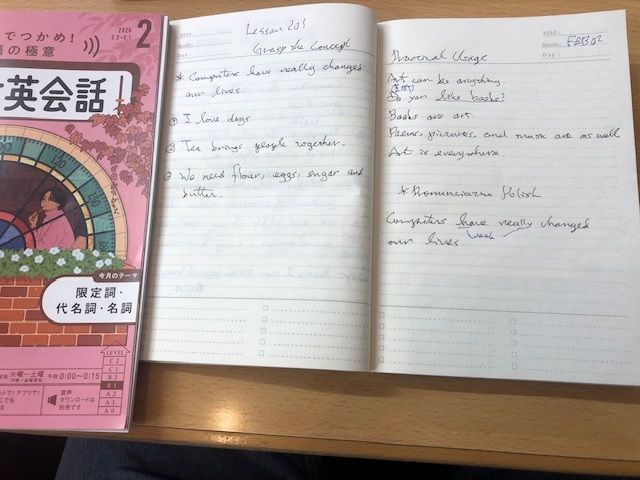 でつかめ!
の極意
2020
2
英会話
今月のテーマ
限定詞・
代名詞・名詞
火曜~土曜 午前0:00~0:15
LEVEL
C2
C1
B2
B1
A2
A1
A0
音声
ダウンロードは
別売です
Lesson 201
Grasp the Concept
* Computers have really changed
our lives.
① I love dogs.
② Tea brings people together.
③ We need flour, eggs, sugar and
butter.
YEAR:
Month: FEB 02
Day:
Practical Usage
Art can be anything.
Do you like books?
Books are art.
Poems, pictures, and music are as well.
Art is everywhere
* Pronunciation Polish
Computers have really changed
weak
our lives.